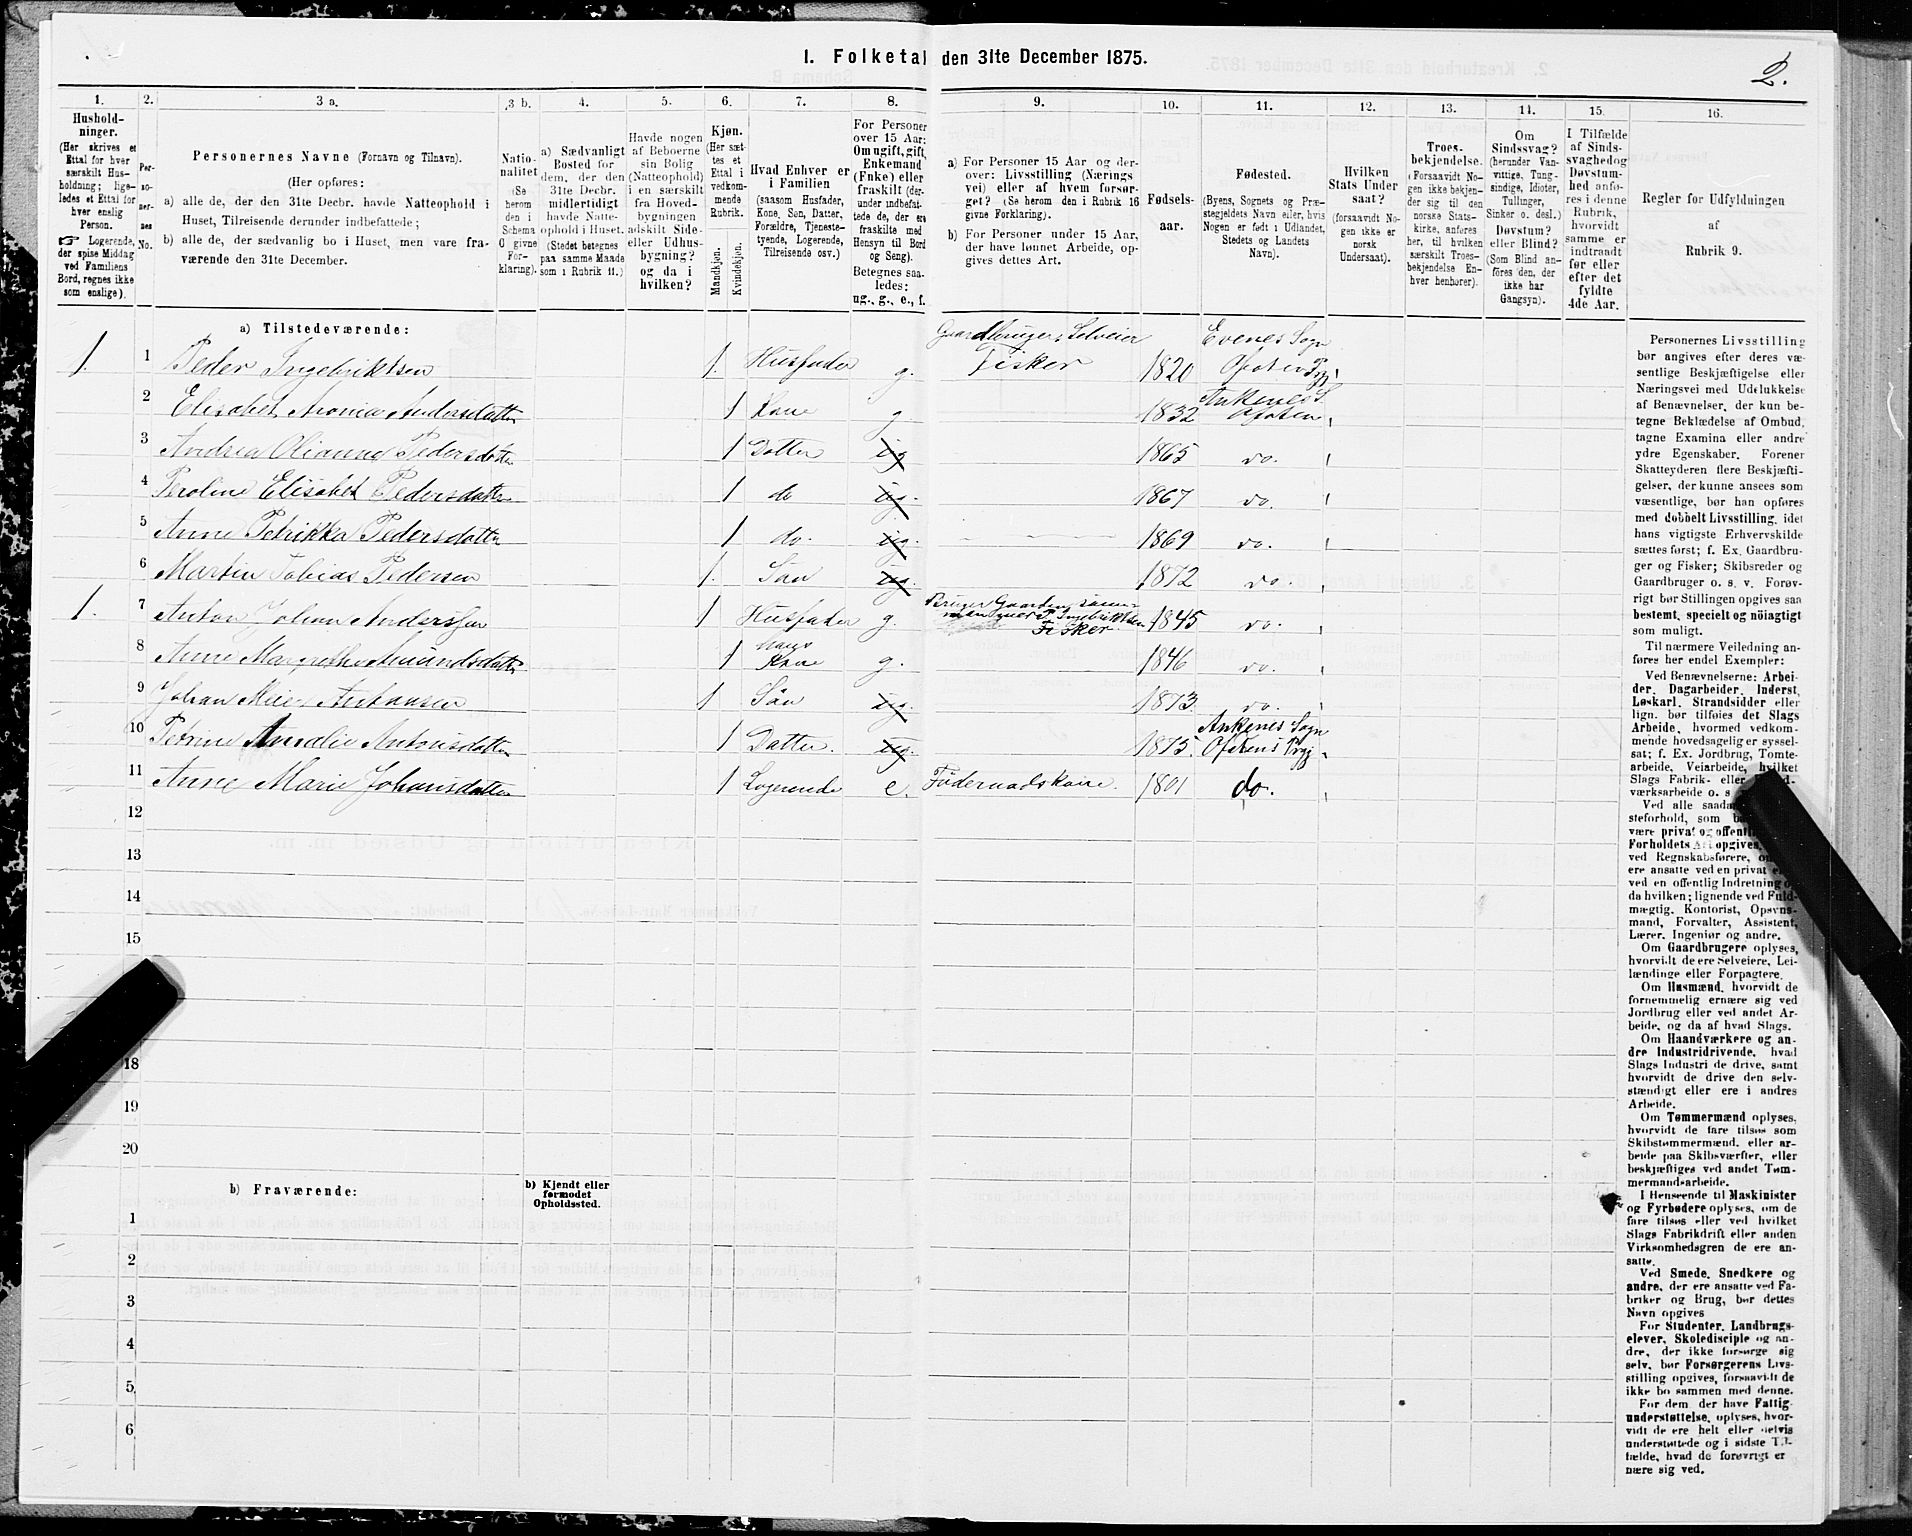 1. Folketal den 31te December 1875.
2.
1.
2.
3 a.
3 b.
4.
5.
6.
7.
8.
9.
10.
11.
12.
13.
14.
15.
16.
Hushold-
ninger.
(Her skrives et
Ettal for hver
særskilt Hus-
holdning; lige-
ledes et Ettal for
hver enslig
Person.
☞ Logerende,
der spise Middag
ved Familiens
Bord, regnes ikke
som enslige).
Per-
so-
ner-
nes
No.
Personernes Navne (Fornavn og Tilnavn).
(Her opføres:
a) alle de, der den 31te Decbr. havde Natteophold i
Huset, Tilreisende derunder indbefattede;
b) alle de, der sædvanlig bo i Huset, men vare fra-
værende den 31te December.
Natio-
nalitet
(Se
herom
den i
Schema
O givne
For-
klaring).
a) Sædvanligt
Bosted for
dem, der den
31te Decbr.
midlertidigt
havde Natte-
ophold i Huset.
(Stedet betegnes
paa samme Maade
som i Rubrik 11.)
Havde nogen
af Beboerne
sin Bolig
(Natteophold)
i en særskilt
fra Hoved-
bygningen
adskilt Side-
eller Udhus-
bygning?
og da i
hvilken?
Kjøn.
(Her sæt-
tes et
Ettal i
vedkom-
mende
Rubrik.
Mandkjøn.
Kvindekjøn.
Hvad Enhver er
i Familien
(saasom Husfader,
Kone, Søn, Datter,
Forældre, Tjeneste-
tyende, Logerende,
Tilreisende osv.)
For Personer
over 15 Aar:
Om ugift, gift,
Enkemand
(Enke) eller
fraskilt (der-
under indbefat-
tede de, der ere
fraskilte med
Hensyn til Bord
og Seng).
Betegnes saa-
ledes:
ug., g., e., f.
a) For Personer 15 Aar og der-
over: Livsstilling (Nærings
vei) eller af hvem forsør-
get? (Se herom den i Rubrik 16
givne Forklaring).
b) For Personer under 15 Aar,
der have lønnet Arbeide, op-
gives dettes Art.
Fødsels-
aar.
Fødested.
(Byens, Sognets og Præ-
stegjeldets Navn eller, hvis
Nogen er født i Udlandet,
Stedets og Landets
Navn).
Hvilken
Stats Under
saat?
(forsaavidt No-
gen ikke er
norsk
Undersaat).
Troes-
bekjendelse.
(Forsaavidt No-
gen ikke bekjen-
der sig til den
norske Stats-
kirke, anføres
her, til hvilken
særskilt Troes-
bekjendelse En-
hver henhører).
Om
Sindssvag?
(herunder Van-
vittige, Tung-
sindige, Idioter,
Tullinger,
Sinker o. desl.)
Døvstum?
eller Blind?
(Som Blind an-
føres den, der
ikke har
Gangsyn).
I Tilfælde
af Sinds-
svaghed og
Døvstum-
hed anfø-
res i denne
Rubrik,
hvorvidt
samme er
indtraadt
før eller
efter det
fyldte
4de Aar.
Regler for Udfyldningen
af
Rubrik 9.
a) Tilstedeværende:
1. 1 Peder Ingebriktsen 1. Husfader g. Gaardbruger, Selveier Fisker 1820 Evenes Sogn Ofoten Prgj
2 Elisabet Monica Andersdatter 1 Kone g 1832 Ankenes S. Ofoten
3 Andrea Olianna Pedersdatter 1 Datter ug 1865 do.
4 Peroline Elisabet Pedersdatter 1 do ug. 1867 do.
5 Anne Petrikka Pedersdatter 1 do. ug. 1869 do.
6 Martin Tobias Pedersen 1. Søn ug. 1872 do.
1. 7 Anton Johan Anderssen 1 Husfader g. Bruger Gaarden sammen med P. Ingebriktsen Fisker 1845 do.
8 Anne Margrethe Amundsdatter 1 hans Kone g. 1846 do.
9 Johan Meier Antonsen 1 Søn ug. 1873. do.
10 Petrine Amalie Antonsdatter 1 Datter. ug. 1875. Ankenes Sogn Ofotens Prgj
11 Anne Marie Johansdatter 1 Logerende e. Føderaadskone. 1801 do.
12
13
14
15
18
19
20
b) Fraværende:
b) Kjendt eller
formodet
Opholdssted.
1
2
3
4
5
6
Personernes Livsstilling
bør angives efter deres væ-
sentlige Beskjæftigelse eller
Næringsvei med Udelukkelse
af Benævnelser, der kun be-
tegne Beklædelse af Ombud,
tagne Examina eller andre
ydre Egenskaber. Forener
Skatteyderen flere Beskjæfti-
gelser, der kunne ansees som
væsentlige, bør han opføres
med dobbelt Livsstilling, idet
hans vigtigste Erhvervskilde
sættes først; f. Ex. Gaardbru-
ger og Fisker; Skibsreder og
Gaardbruger o. s. v. Forøv-
rigt bør Stillingen opgives saa
bestemt, specielt og nöiagtigt
som muligt.
Til nærmere Veiledning an-
føres her endel Exempler:
Ved Benævnelserne: Arbei-
der, Dagarbeider, Inderst,
Løskarl, Strandsidder eller
lign. bør tilføies det Slags
Arbeide, hvormed vedkom-
mende hovedsagelig er syssel-
sat; f. Ex. Jordbrug, Tomte-
arbeide, Veiarbeide, hvilket
Slags Fabrik- eller
værksarbeide o. s
Ved alle saada
steforhold, som
være privat og offent
Forholdets Art opgives,
ved Regnskabsførere,
ere ansatte ved en privat
ved en offentlig Indretning
da hvilken; lignende ved Fuld-
mægtig, Kontorist, Opsyns-
mand, Forvalter, Assistent,
Lærer, Ingeniør og andre.
Om Gaardbrugere oplyses,
hvorvidt de ere Selveiere, Lei-
lændinge eller Forpagtere.
Om Husmænd, hvorvidt de
fornemmelig ernære sig ved
Jordbrug eller ved andet Ar-
beide, og da af hvad Slags.
Om Haandværkere og an-
dre Industridrivende, hvad
Slags Industri de drive, samt
hvorvidt de drive den selv-
stændigt eller ere i andres
Arbeide.
Om Tømmermænd oplyses,
hvorvidt de fare tilsøs som
Skibstømmermænd, eller ar-
beide paa Skibsværfter, eller
beskjæftiges ved andet Tøm-
mermandsarbeide.
I Henseende til Maskinister
og Fyrbødere oplyses, om de
fare tilsøs eller ved hvilket
Slags Fabrikdrift eller anden
Virksomhedsgren de ere an-
satte.
Ved Smede, Snedkere og
andre, der ere ansatte ved Fa-
briker og Brug, bør dettes
Navn opgives
For Studenter, Landbrugs-
elever, Skoledisciple og an-
dre, der ikke forsørge sig
selv, bør Forsørgerens Livs-
stilling opgives, forsaavidt de
ikke bo sammen med denne.
For dem, der have Fattig-
understøttelse, oplyses, hvor-
vidt de ere helt eller delvis
understøttede og i sidste Til-
fælde, hvad de forøvrigt er
nære sig ved.